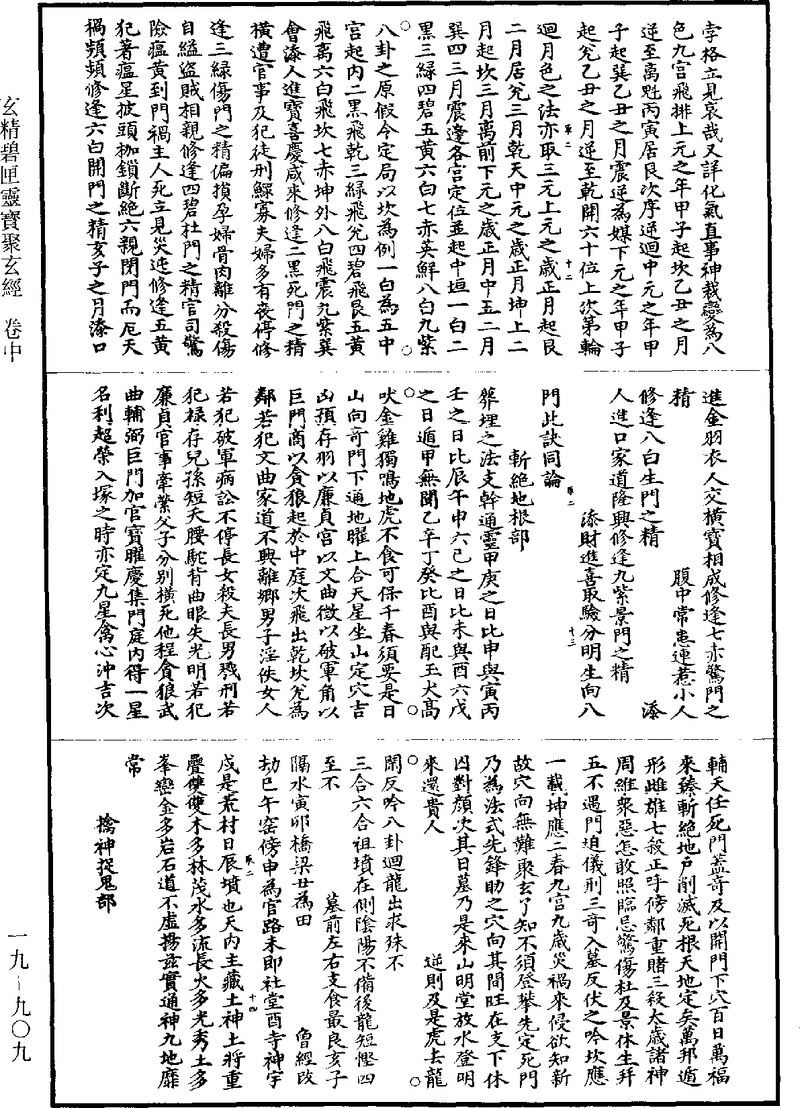 孛格立見哀哉又詳化氣直事神裁變為八
色九宫飛排上元之年甲子起坎乙丑之月
逆至离魁丙寅居艮次序逆迴中元之年甲
子起巽乙丑之月震逆為媒下元之年甲子
起兊乙丑之月逆至乾開六十位上次第輪
迴月色之法亦取三元上元之歲正月起艮
二月居兊三月乾天中元之歲正月坤上二
月起坎三月离前下元之歲正月中五二月
巽四三月震邊各宫定位並起中垣一白二
黑三緑四碧五黄六白七赤英鮮八白九紫
八卦之原假令定局以坎為例一白為五中
宫起內二黑飛乾三緑飛兊四碧飛艮五黄
飛离六白飛坎七赤坤外八白飛震九紫巽
會添人進寳喜慶咸來修逢二黑死門之精
横遭官事及犯徒刑鰥寡夫婦多有喪停修
逢三緑傷門之精偏損孕婦骨肉離分殺傷
自縊盜賊相親修逢四碧杜門之精官司驚
險瘟黄到門禍主人死立見災迍修逢五黄
犯著瘟星披頭枷鎖斷絶六親閉門而厄天
禍頻頻修逢六白開門之精亥子之月添口
進金羽衣人交横寳相成修逢七赤驚門之
精　　腹中常患連惹小人
修逢八白生門之精　　添
人進口家道隆興修逢九紫景門之精
添財進喜取驗分明生向八
門此訣同論
斬絶地根部
葬埋之法支幹通靈甲庚之日比申與寅丙
壬之日比辰午申六己之日比未與酉六戊
之日遁甲無聞乙辛丁癸比酉與配玉犬高
吠金雞獨鳴地虎不食可保千春須要是日
山向奇門下通地曜上合天星坐山定穴吉
凶預存羽以廉貞宫以文曲徵以破軍角以
巨門商以貪狼起於中庭次飛出乾坎兊為
鄰若犯文曲家道不興離鄉男子淫佚女人
若犯破軍病訟不停長女殺夫長男殘刑若
犯禄存兒孫短夭腰駝背曲眼失光明若犯
廉貞官事牽縈父子分别横死他程貪狼武
曲輔弼巨門加官寳曜慶集門庭內得一星
名利超榮入塚之時亦定九星禽心沖吉次
輔天任死門蓋奇及以開門下穴百日萬福
來臻斬絶地户削滅死根天地定矣萬邦遁
形雌雄七殺正呼傍鄰重賭三殺太歲諸神
周維衆惡怎敢照臨忌驚傷杜及景休生幷
五不遇門迫儀刑三奇入墓反伏之吟坎應
一載坤應二春九宫九歲災禍來侵欲知新
故穴向無難聚玄了知不須登攀先定死門
乃為法式先鋒助之穴向其間旺在支下休
囚對顔次其日墓乃是來山明堂放水登明
來還貴人　　逆則及是虎去龍
閑反吟八卦迴龍出求殊不
三合六合祖墳在側陰陽不備後龍短慳四
至不　　墓前左右支食最良亥子
隔水寅卯橋梁丑為田　　曾經改
刼巳午窑傍申為官路未即社堂酉寺神宇
戍是荒村日辰墳也天內主藏土神土將重
疊雙雙木多林茂水多流長火多光秀土多
峯巒金多岩石道不虚揚玆實通神九地靡
常
擒神捉鬼部
玄精碧匣靈寳聚玄經　卷中
一九－九〇九